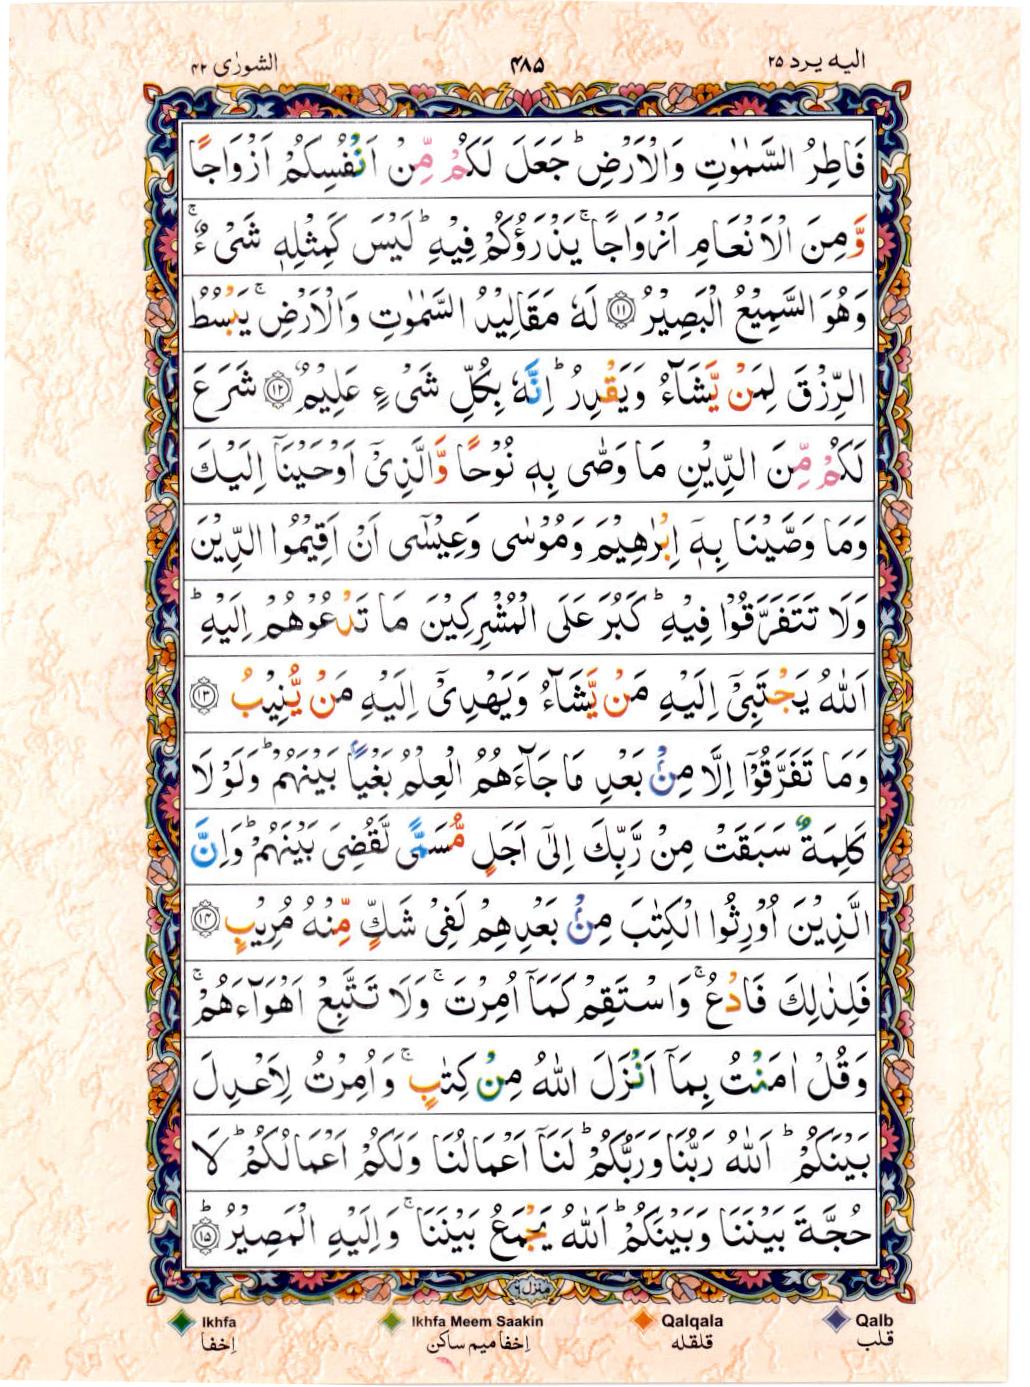 الیه یرد ۲۵
۴۸۵
الشورٰی ۴۲
فَاطِرُ السَّمٰوٰتِ وَالْاَرْضِ ؕ جَعَلَ لَكُمْ مِّنْ اَنْفُسِكُمْ اَزْوَاجًا
وَّمِنَ الْاَنْعَامِ اَزْوَاجًا ۚ يَذْرَؤُكُمْ فِيْهِ ؕ لَيْسَ كَمِثْلِهٖ شَىْءٌ ۚ
وَهُوَ السَّمِيْعُ الْبَصِيْرُ ﴿۱۱﴾ لَهٗ مَقَالِيْدُ السَّمٰوٰتِ وَالْاَرْضِ ۚ يَبْسُطُ
الرِّزْقَ لِمَنْ يَّشَآءُ وَيَقْدِرُ ؕ اِنَّهٗ بِكُلِّ شَىْءٍ عَلِيْمٌ ﴿۱۲﴾ شَرَعَ
لَكُمْ مِّنَ الدِّيْنِ مَا وَصّٰى بِهٖ نُوْحًا وَّالَّذِىْۤ اَوْحَيْنَاۤ اِلَيْكَ
وَمَا وَصَّيْنَا بِهٖۤ اِبْرٰهِيْمَ وَمُوْسٰى وَعِيْسٰۤى اَنْ اَقِيْمُوا الدِّيْنَ
وَلَا تَتَفَرَّقُوْا فِيْهِ ؕ كَبُرَ عَلَى الْمُشْرِكِيْنَ مَا تَدْعُوْهُمْ اِلَيْهِ ؕ
اَللّٰهُ يَجْتَبِىْۤ اِلَيْهِ مَنْ يَّشَآءُ وَيَهْدِىْۤ اِلَيْهِ مَنْ يُّنِيْبُ ﴿۱۳﴾
وَمَا تَفَرَّقُوْۤا اِلَّا مِنْۢ بَعْدِ مَا جَآءَهُمُ الْعِلْمُ بَغْيًاۢ بَيْنَهُمْ ؕ وَلَوْلَا
كَلِمَةٌ سَبَقَتْ مِنْ رَّبِّكَ اِلٰٓى اَجَلٍ مُّسَمًّى لَّقُضِىَ بَيْنَهُمْ ؕ وَاِنَّ
الَّذِيْنَ اُوْرِثُوا الْكِتٰبَ مِنْۢ بَعْدِهِمْ لَفِىْ شَكٍّ مِّنْهُ مُرِيْبٍ ﴿۱۴﴾
فَلِذٰلِكَ فَادْعُ ۚ وَاسْتَقِمْ كَمَاۤ اُمِرْتَ ۚ وَلَا تَتَّبِعْ اَهْوَآءَهُمْ ۚ
وَقُلْ اٰمَنْتُ بِمَاۤ اَنْزَلَ اللّٰهُ مِنْ كِتٰبٍ ۚ وَاُمِرْتُ لِاَعْدِلَ
بَيْنَكُمْ ؕ اَللّٰهُ رَبُّنَا وَرَبُّكُمْ ؕ لَنَاۤ اَعْمَالُنَا وَلَكُمْ اَعْمَالُكُمْ ؕ لَا
حُجَّةَ بَيْنَنَا وَبَيْنَكُمْ ؕ اَللّٰهُ يَجْمَعُ بَيْنَنَا ۚ وَاِلَيْهِ الْمَصِيْرُ ؕ ﴿۱۵﴾
منزل ۶
Ikhfa
اِخفا
Ikhfa Meem Saakin
اِخفا میم ساکن
Qalqala
قلقله
Qalb
قلب